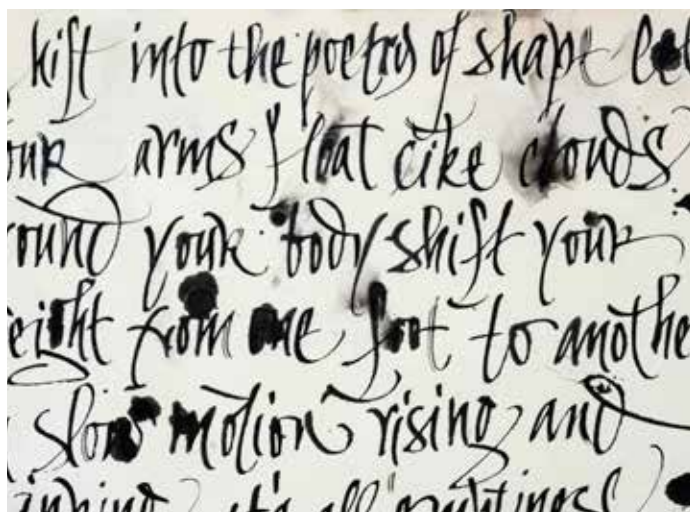 hift into the poetry of shape let
our arms float like clouds
round your body shift your
eight from one foot to anothe
slow motion rising and
it's all